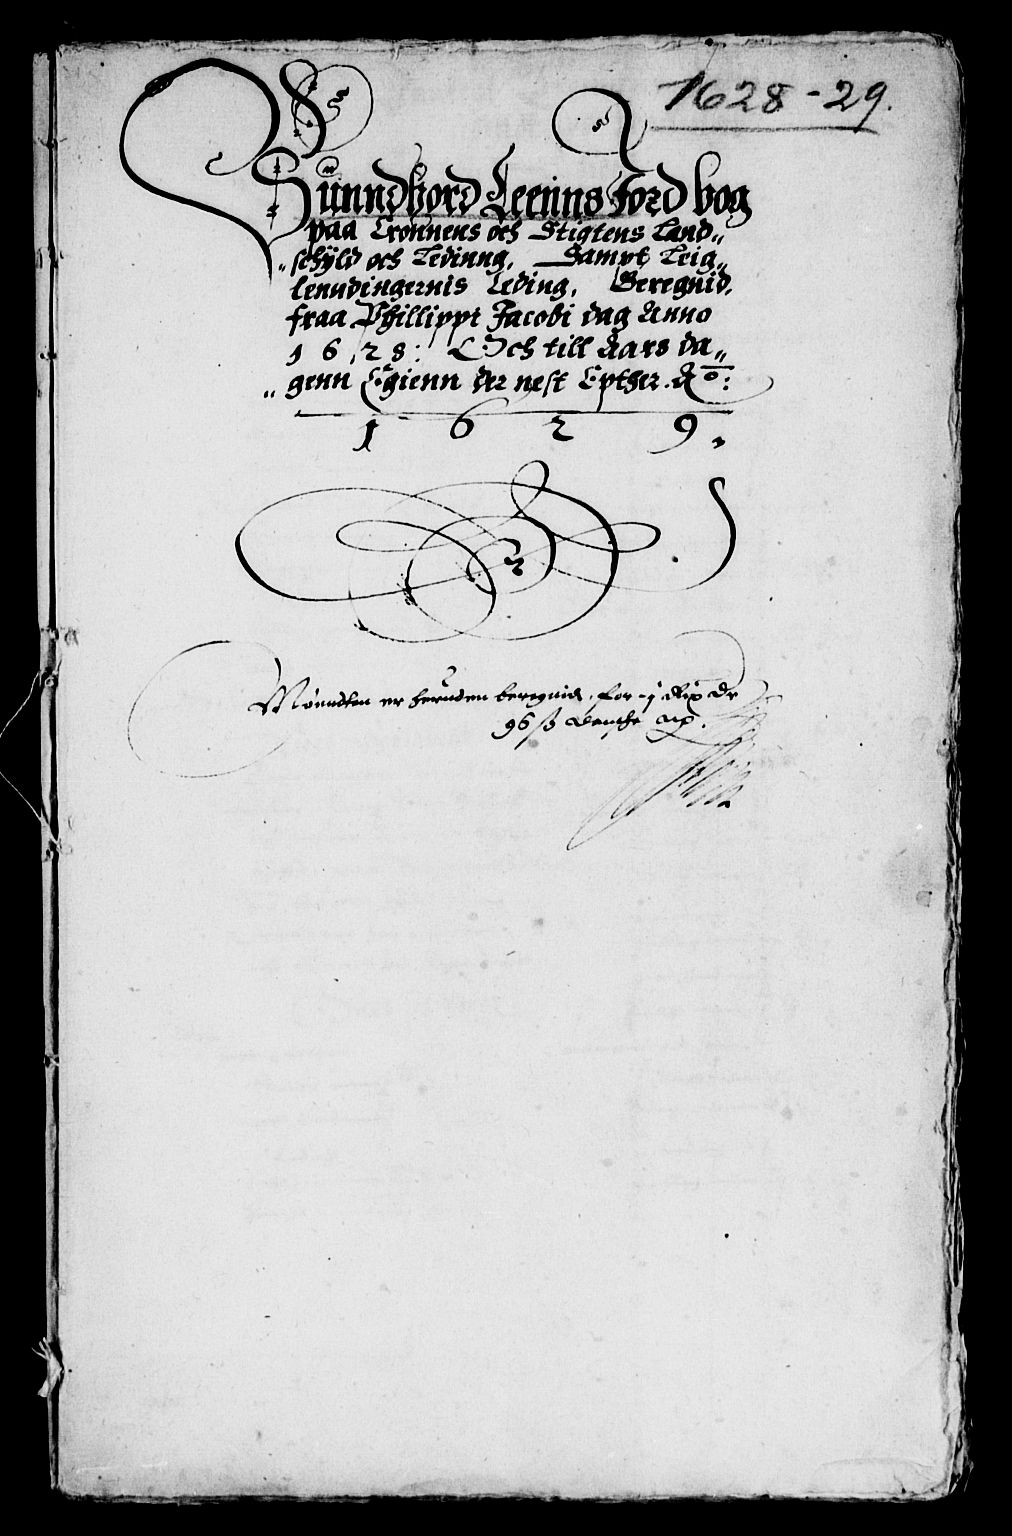 1628-29.
Sünndfiord Leenns Jord bog
paa Cronnens och Stigtens Land„
„schyld och Ledinng, Sampt Leig„
lenndingernis Leding, Beregnid,
fraa Phillippi Jacobi dag Anno
1628: Och till Aars da„
„genn Egienn der nest Epther. Ao:
1629.
Mönndten er heruden beregnid, for -j Rix Dr
96 ß danske